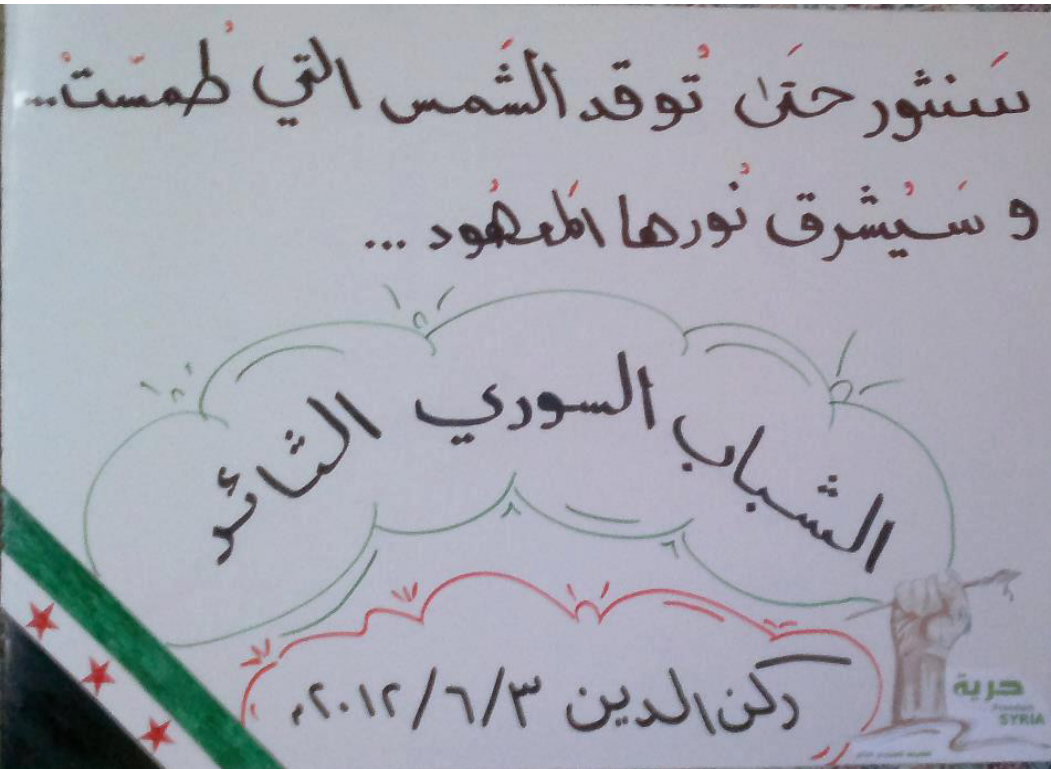 سَنثور حتَىٰ تُوقد الشَمس التي طُمسَتْ...
و سَيُشرق نُورها المَعهُود ...
الشباب السوري الثائر
ركن الدين ٢٠١٢/٦/٣م
حرية
Freedom
SYRIA